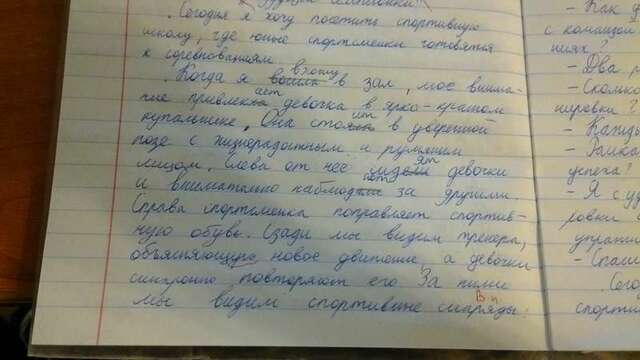 Будущие чемпионки!
. Сегодня я хочу посетить спортивную
школу, где юные спортсменки готовятся
к соревнованиям.
вхожу
. Когда я вошла в зал, мое внима-
ает
ние привлекла девочка в ярко-красном
ит
купальнике. Она стояла в уверенной
позе с жизнерадостным и румяным
ят
лицом. Слева от неё сидели девочки
ают
и внимательно наблюдали за другими.
Справа спортсменка поправляет спортив-
ную обувь. Сзади мы видим тренера,
объясняющую новое движение, а девочки
синхронно повторяют его. За ними
В п
мы видим спортивные снаряды.
- Как
с командой
ниях?
- Два
- Сколько
нировки?
- Кажды
успеха?
- Я
ровки
- Спаси
Сего
спортив